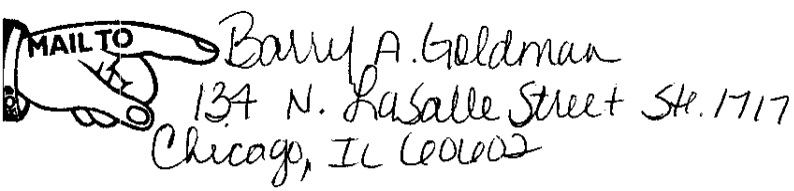 MAIL TO
Barry A. Goldman
134 N. LaSalle Street Ste. 1717
Chicago, IL 60602